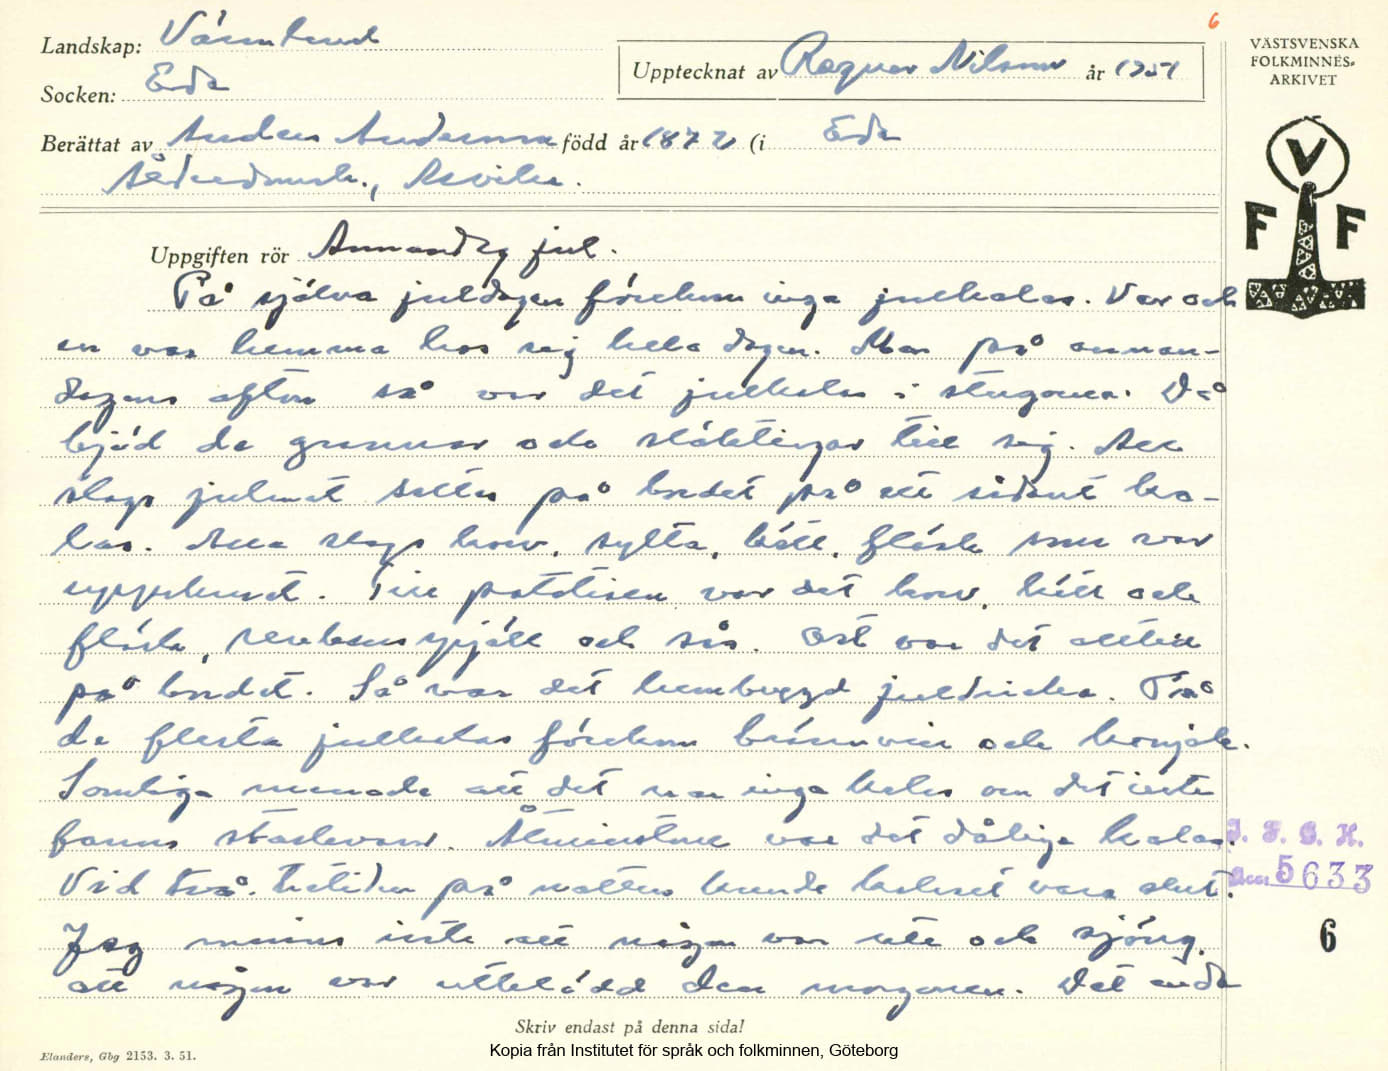 6
Landskap: Värmland
Socken: Eda
Upptecknat av Ragnar Nilsson år 1951
VÄSTSVENSKA
FOLKMINNES-
ARKIVET
V
F F
Berättat av Anders Anderson född år 1872 (i Eda
Ålderdomsh., Åsvika.
Uppgiften rör Annandag jul.
På själva juldagen förekom inga julkalas. Var och
en var hemma hos sig hela dagen. Men på annan-
dagens afton så var det julkalas i stugorna. Då
bjöd de grannar och släktingar till sig. All
slags julmat sattes på bordet på ett sådant ka-
las. Alla slags korv, sylta, kött, fläsk som var
uppskuret. Till potatisen var det korv, kött och
fläsk, revbensspjäll och sås. Ost var det alltid
på bordet. Så var det hembryggd juldricka. På
de flesta julkalas förekom brännvin och konjak.
Somliga menade att det var inga kalas om det inte
fanns starkvaror. Åtminstone var det dåliga kalas.
Vid två-tretiden på natten kunde kalaset vara slut.
Jag minns inte att någon var ute och sjöng,
att någon var utklädd den morgonen. Det enda
I. F. G. H.
Acc. 5633
6
Skriv endast på denna sida!
Elanders, Gbg 2153. 3. 51.
Kopia från Institutet för språk och folkminnen, Göteborg